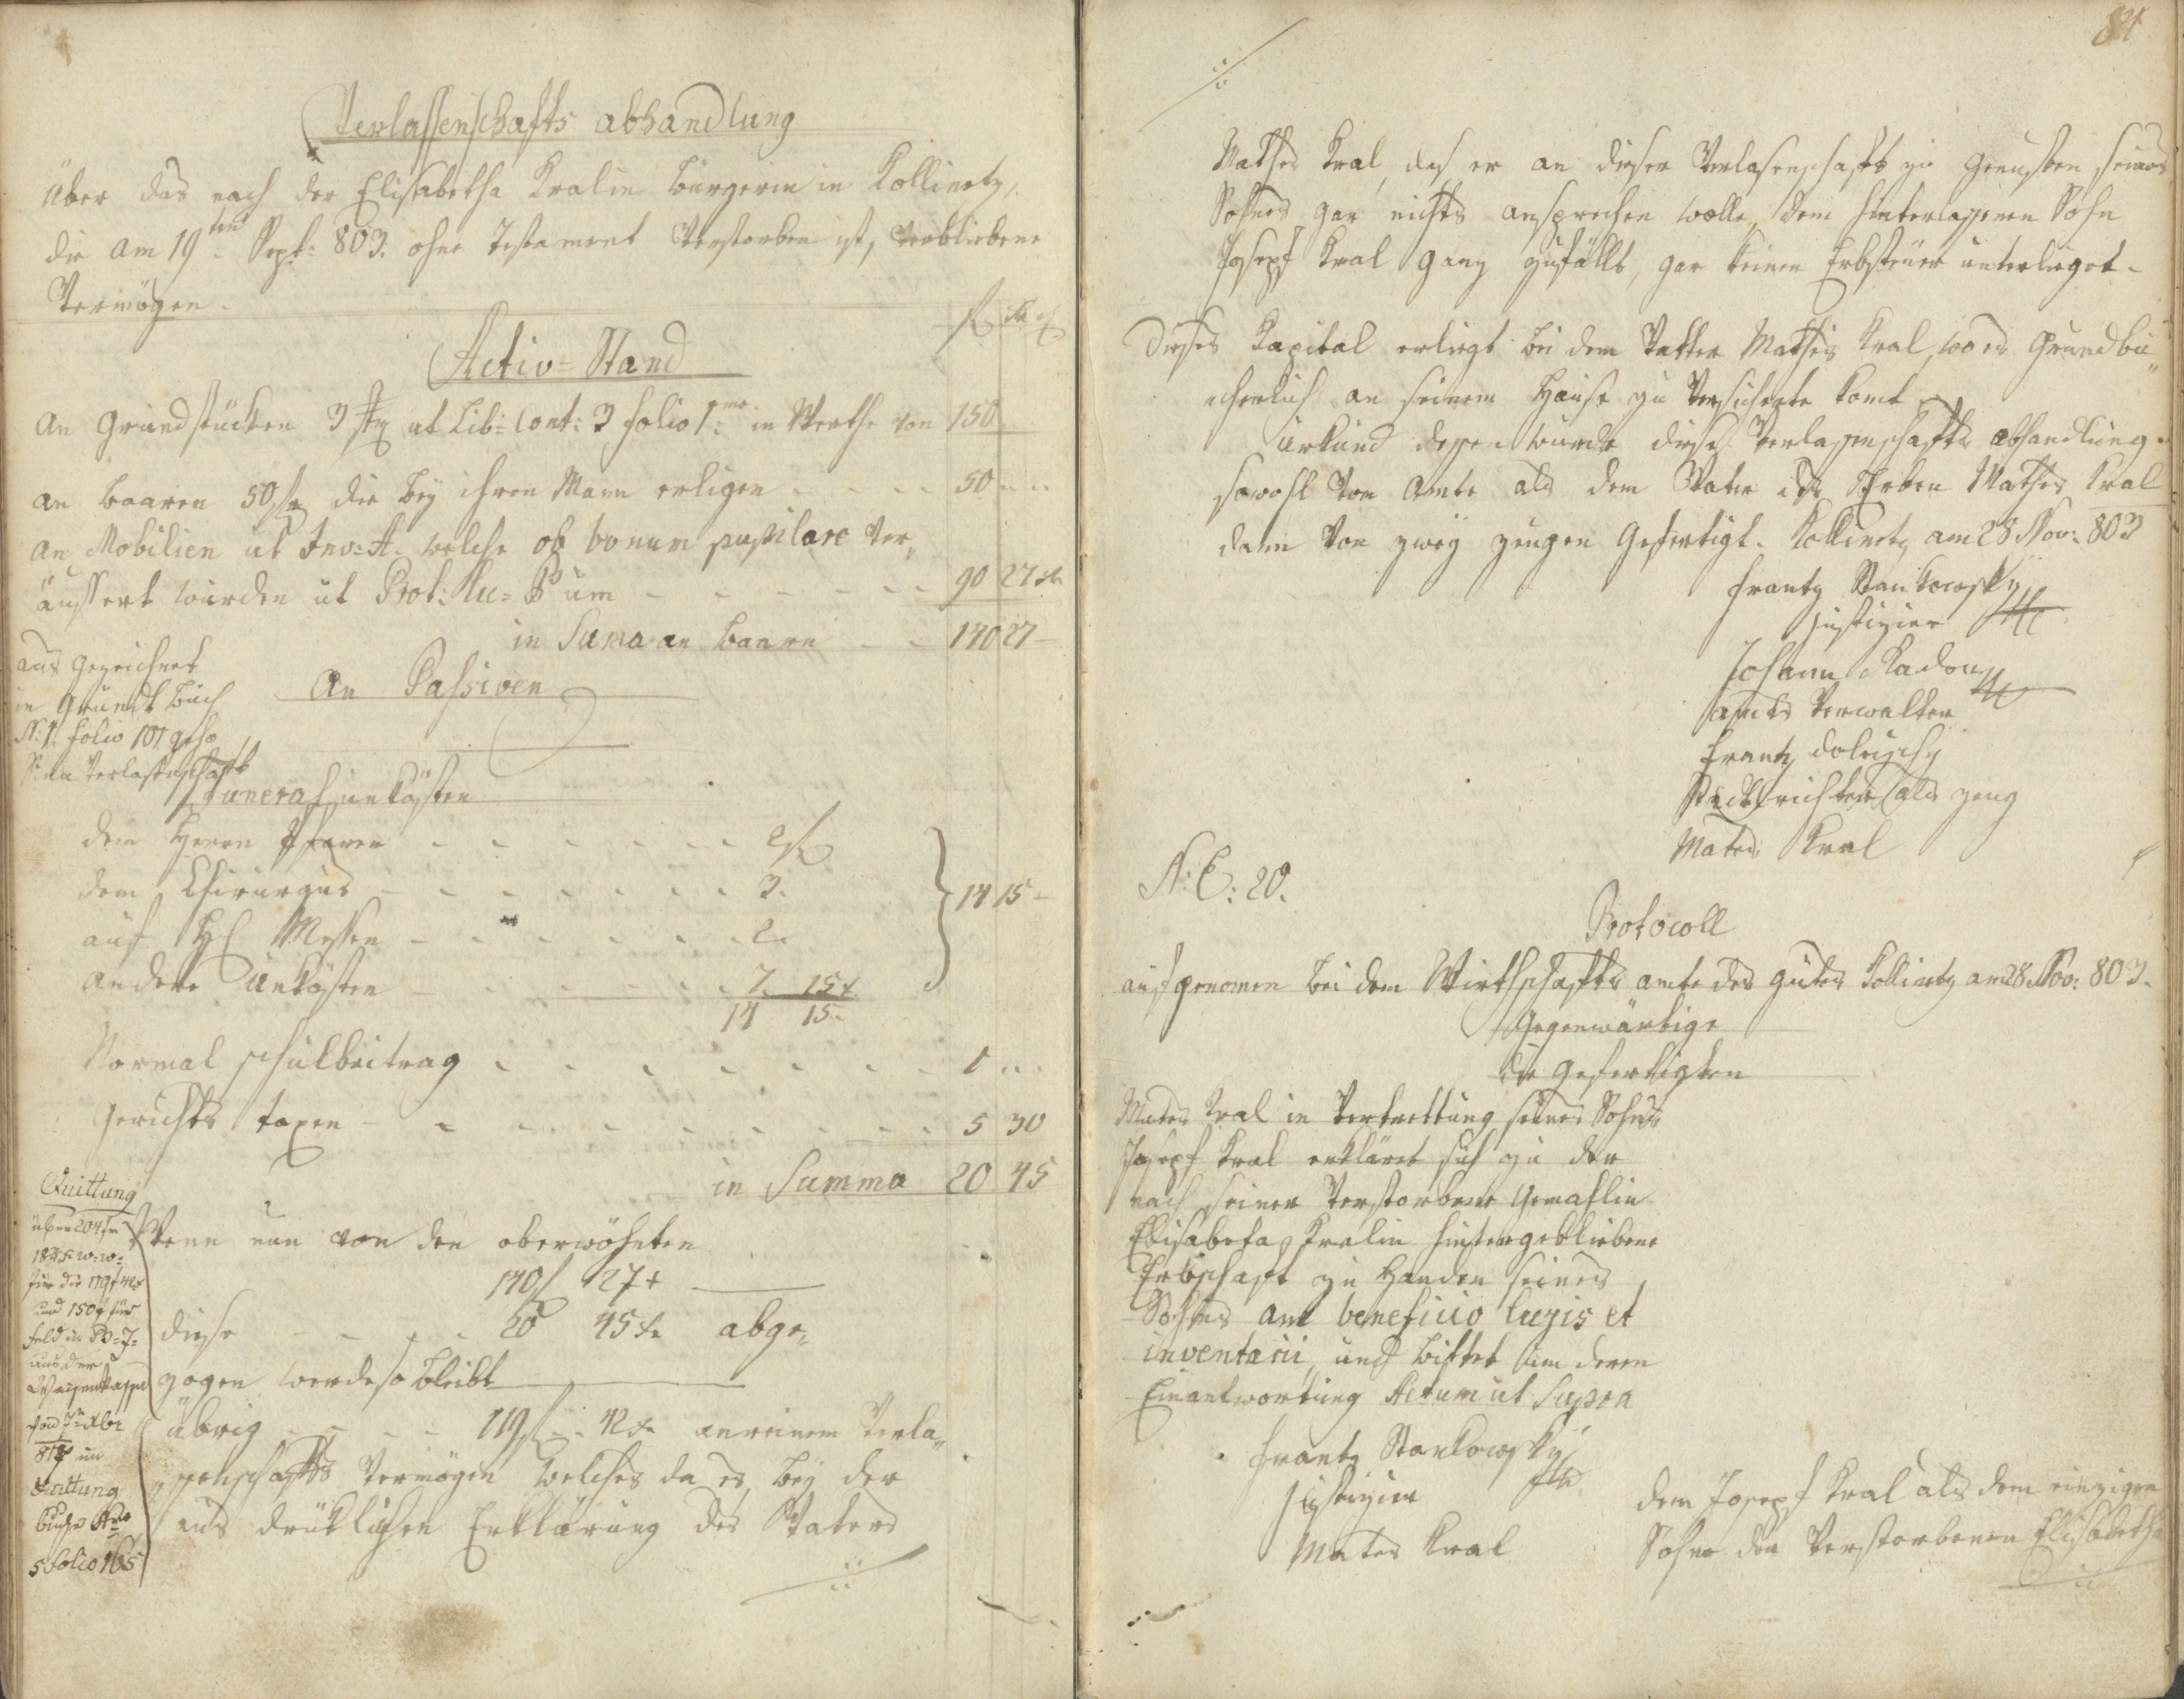 Verlassenschafts abhandlung
über das nach der Elisabetha Kralin bürgerin in Kollinetz,
die am 19ten Sept: 803. ohne Testament Verstorben ist, Verbliebene
Vermögen.
f x
Activ=Stand
An Grundstücken 3 ut Lib: Cont: 3 folio 1mo in Werthe von 150
an baaren 50 f die bey ihren Mann erligen 50 ..
an Mobilien ut Inv: A. welche ob bonum pupilare Ver„
äussert wurden ut Prot: B um 90 27 x
in Suma an baaren 140 27
aus gezeichnet
in Grundt buch
N: 1. folio 101
Verlassenschaft
An Passiven
Funeral unkösten
dem Herrn Pfarrer 2 f
dem Chirurgus 3.
auf Hl Messen 2.
andere Unkösten 7. 15 x
14 15.
14 15
Normal schulbeitrag 1 ..
Gerichts taxen 5 30
in Summa 20 45
Quittung
über 204 f
18 x w: w:
für die 119 f 42 x
und 150 f für
feld in
aus der
Waysenkassa
817 im
Quittung
buche Nro
5 folio 165
Wenn nun von den oberwöhnten
140 f 27 x
diese 20 45 x abge„
zogen werde so bleibt
übrig 119 f 42 x an reinem Verla„
ssenschafts Vermögen welches da es bey der
aus drüklichen Erklärung des Vaters
84
Mathes Kral, das er an dieser Verlasenschaft zu Gunsten seines
Sohnes gar nichts ansprechen wolle, dem hinterlassenen Sohn
Josepf Kral ganz zufällt, gar keiner Erbsteuer unterlieget.
Dieses Kapital erliegt bei dem Vatter Mathes Kral, wo es Grundbü„
cherlich an seinem Hause zu Versicherte komt
Urkund dessen wurde diese Verlassenschafts abhandlung
sowohl vom Amte als dem Vater des Erben Mathes Kral
dann von zwey zeugen Gefertigt. Kollinetz am 28 Nov: 803
Frantz Stankowsky
Justizier
Johann Kadon
amts Verwalter
Frantz
Stadtrichter als zeug
Mates Kral
N: E: 20.
Protocoll
aufgenomen bei dem Wirthschafts amte des gutes Kollinetz am 28 Nov: 803.
Gegenwärtige
die Gefertigten
Mates Kral in Vertrettung seines Sohnes
Josepf Kral erkläret sich zu der
nach seiner Verstorbene Gemahlin
Elisabeha Kralin hintergebliebene
Erbschaft zu Handen seines
Sohnes cum beneficio legis et
inventarii, und bittet um deren
Einantwortung Actum ut Supra
Frantz Stankowsky
Justizier
Mates Kral
dem Josepf Kral als dem einzigen
Sohne der Verstorbenen Elisabetha